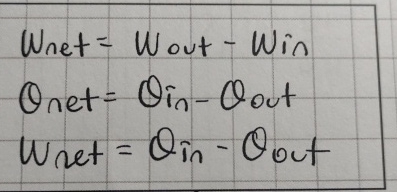 Wnet = Wout - Win
Qnet = Qin - Qout
Wnet = Qin - Qout